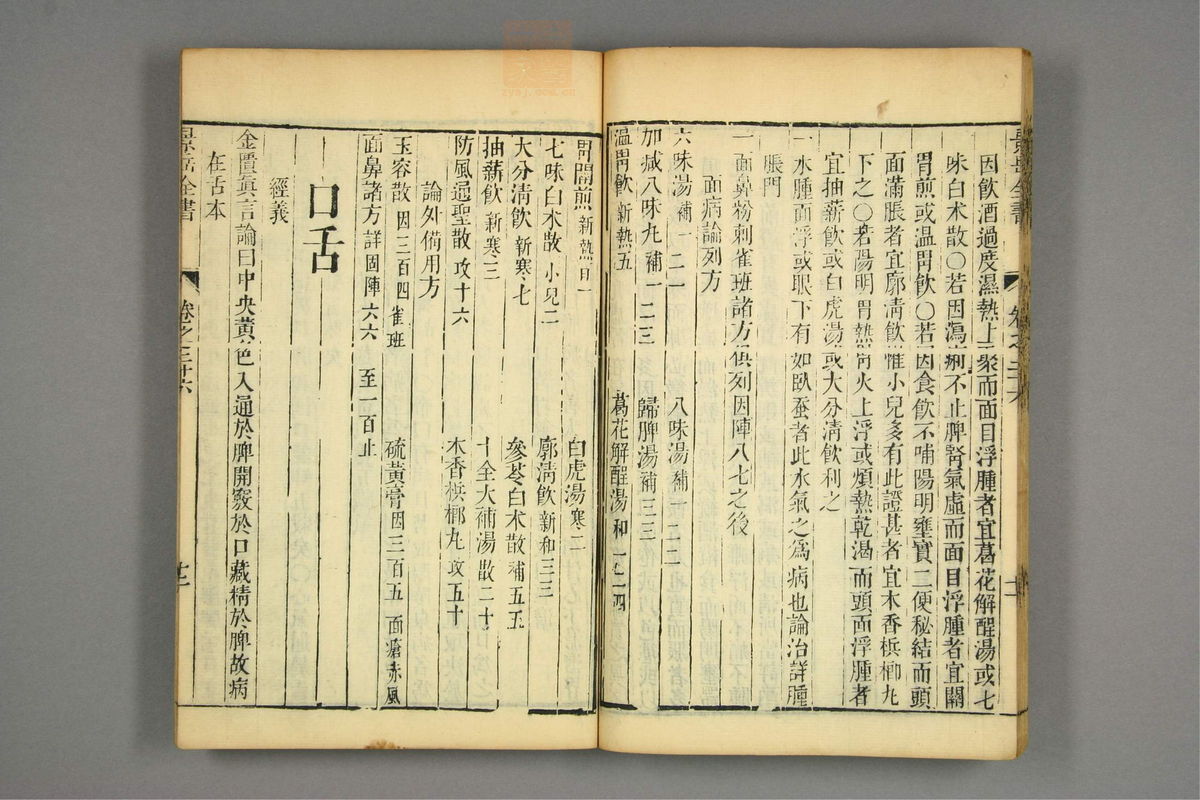 因飲酒過度濕熱上聚而面目浮腫者宜葛花解醒湯或七
味白朮散○若因瀉痢不止脾腎氣虛而面目浮腫者宜
胃煎或溫胃飲○若因食飲不哺陽明壅實二便秘結而頭
面滿脹者宜廓清飲惟小兒多有此證甚者宜木香檳榔丸
下之○若陽明胃熱火上浮或煩熱乾渴而頭面浮腫者
宜抽薪飲或白虎湯或大分清飲利之
一水腫面浮或眼下有如臥蚕者此水氣之為病也論治詳腫
脹門
一面鼻粉刺雀班諸方俱列因陣八七之後
面病論列方
六味湯 補一二一 八味湯 補一二二
加减八味丸 補一二三 歸脾湯 補三二
溫胃飲 新熱五 葛花解醒湯 和一二四
景岳全書 卷之二十六
胃關煎 新熱 一 白虎湯 寒二
七味白朮散 小兒二 廓清飲 新和三三
大分清飲 新寒七 參苓白朮散 補五五
抽薪飲 新寒三 十全大補湯 散二十
防風通聖散 攻十六 木香檳榔丸 攻五十
論外備用方
玉容散 因三百四 雀班 硫黃膏 因三百五 面瘡赤風
面鼻諸方 詳固陣六六 至一百止
口舌
經義
金匱真言論曰中央黃色入通於脾開竅於口藏精於脾故病
在舌本
景岳全書 卷之二十六